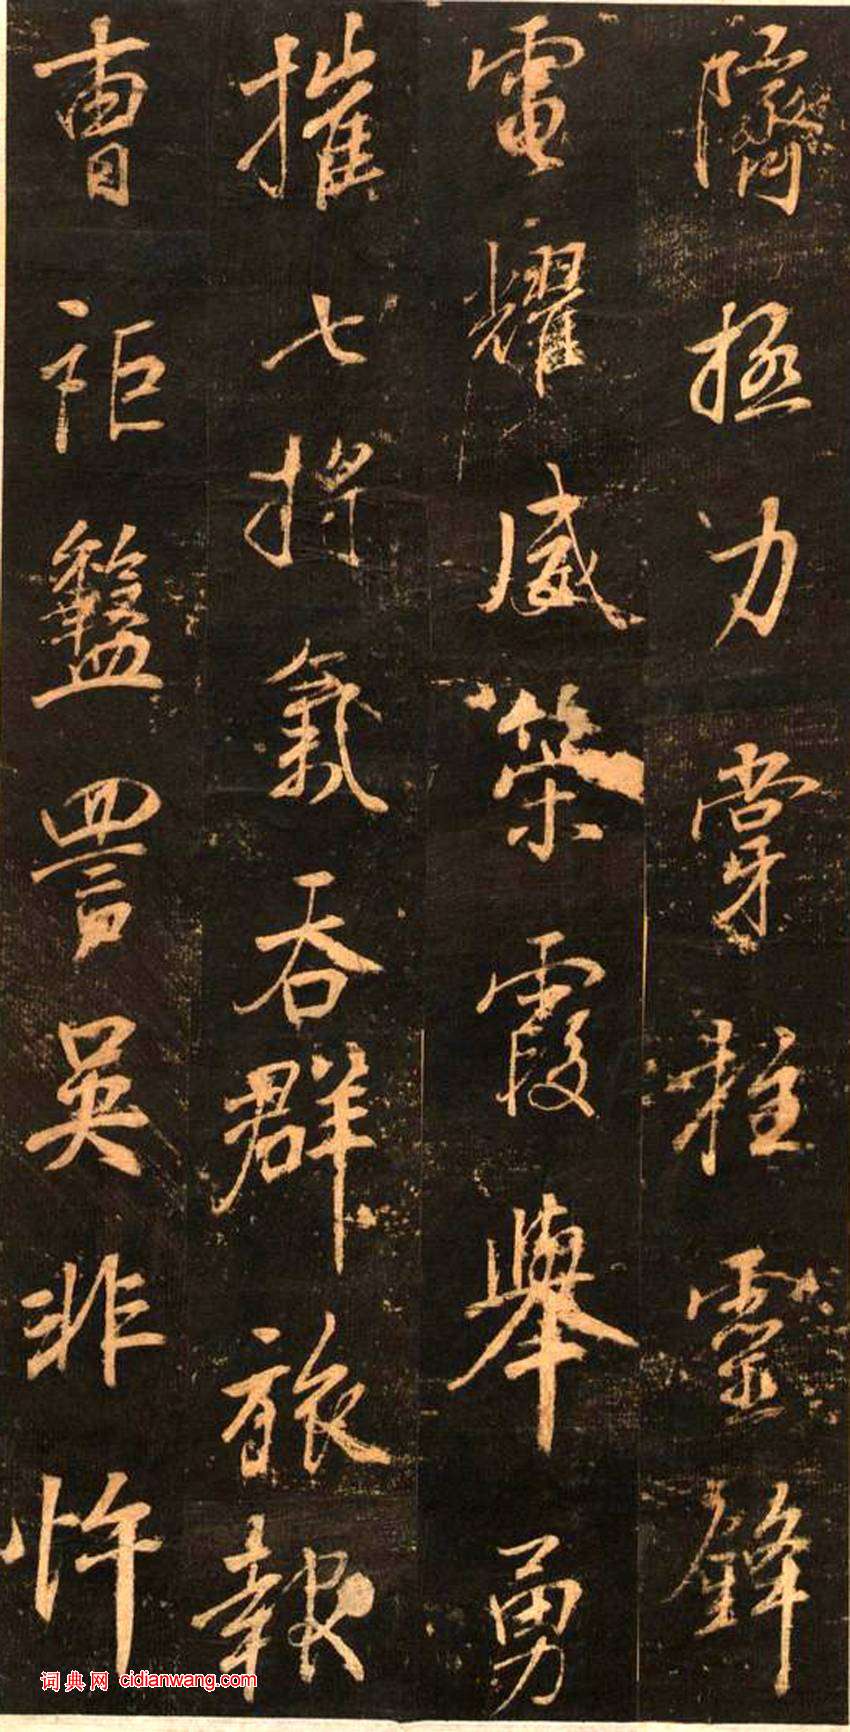 隮拯力掌靈鋒
電耀威策霞舉勇
摧七將氣吞群旅報
曹詎詈吳非忤
词典网 cidianwang.com